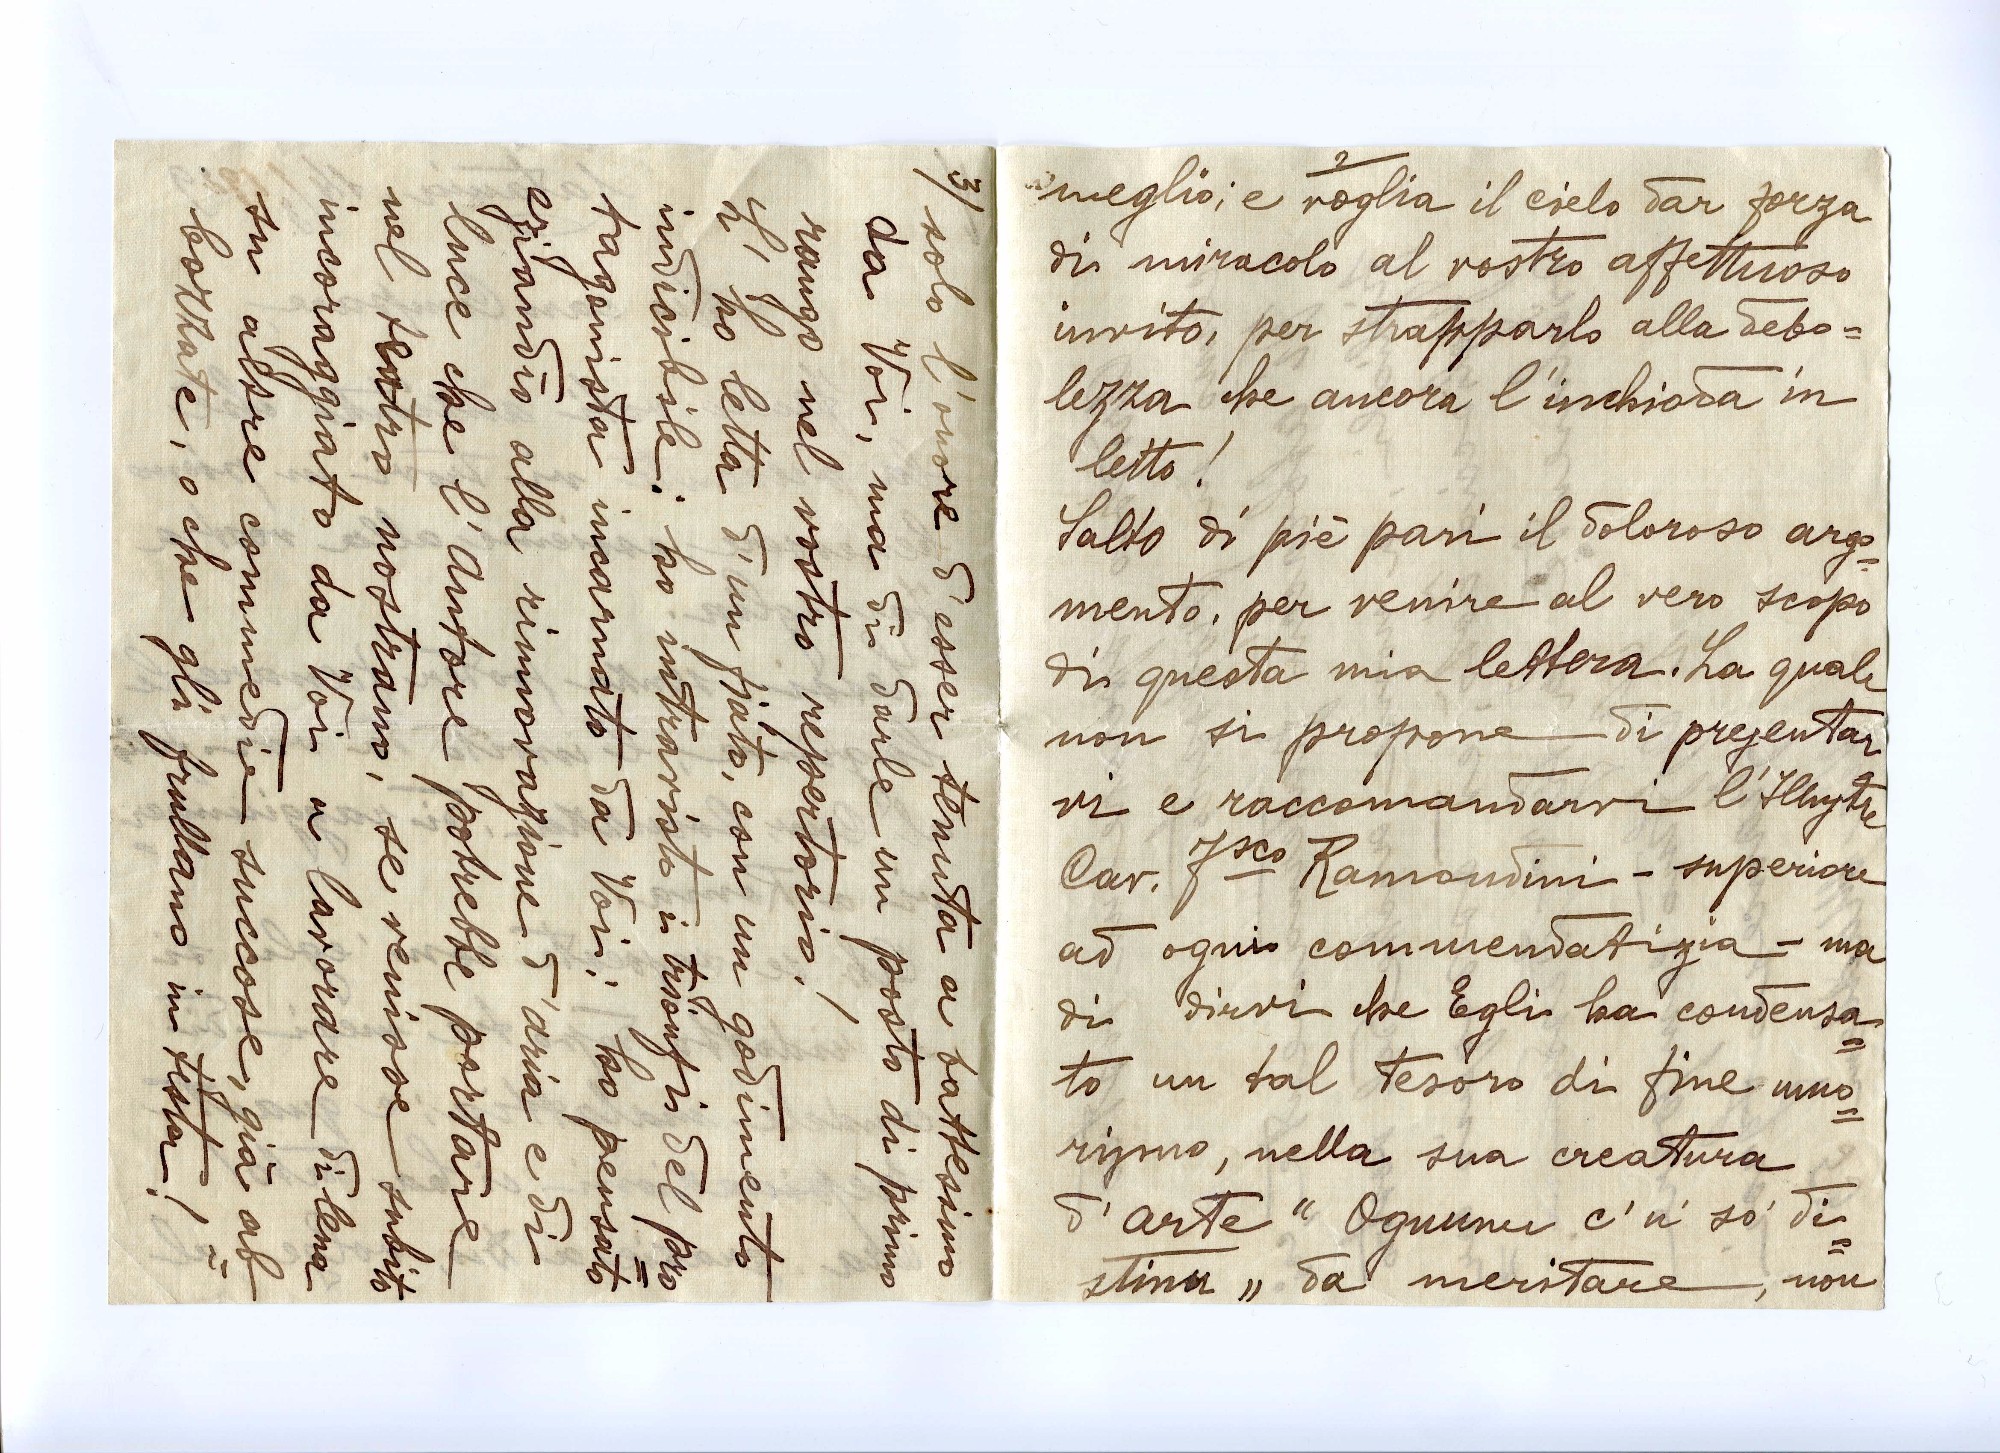 2
meglio; e voglia il cielo dar forza
di miracolo al vostro affettuoso
invito, per strapparlo alla debo=
lezza che ancora l'inchioda in
letto!
Salto di piè pari il doloroso argo=
mento, per venire al vero scopo
di questa mia lettera. La quale
non si propone di presentar
vi e raccomandarvi l'Illustre
Cav. Fsco Ramondini - superiore
ad ogni commendatizia - ma
di dirvi che Egli ha condensa=
to un tal tesoro di fine umo=
rismo, nella sua creatura
d'arte "Ognunu c'u so' di=
stinu" da meritare, non
3/ solo l'onore d'esser tenuta a battesimo
da Voi, ma di darle un posto di primo
rango nel vostro repertorio!
L'ho letta d'un fiato, con un godimento
indicibile; ho intravisto i trionfi del pro=
tagonista incarnato da Voi; ho pensato
eziandio alla rinnovazione d'aria e di
luce che l'Autore potrebbe portare
nel teatro nostrano, se venisse subito
incoraggiato da Voi a lavorare di lena
su altre commedie succose, già ab=
bozzate, o che gli frullano in testa!